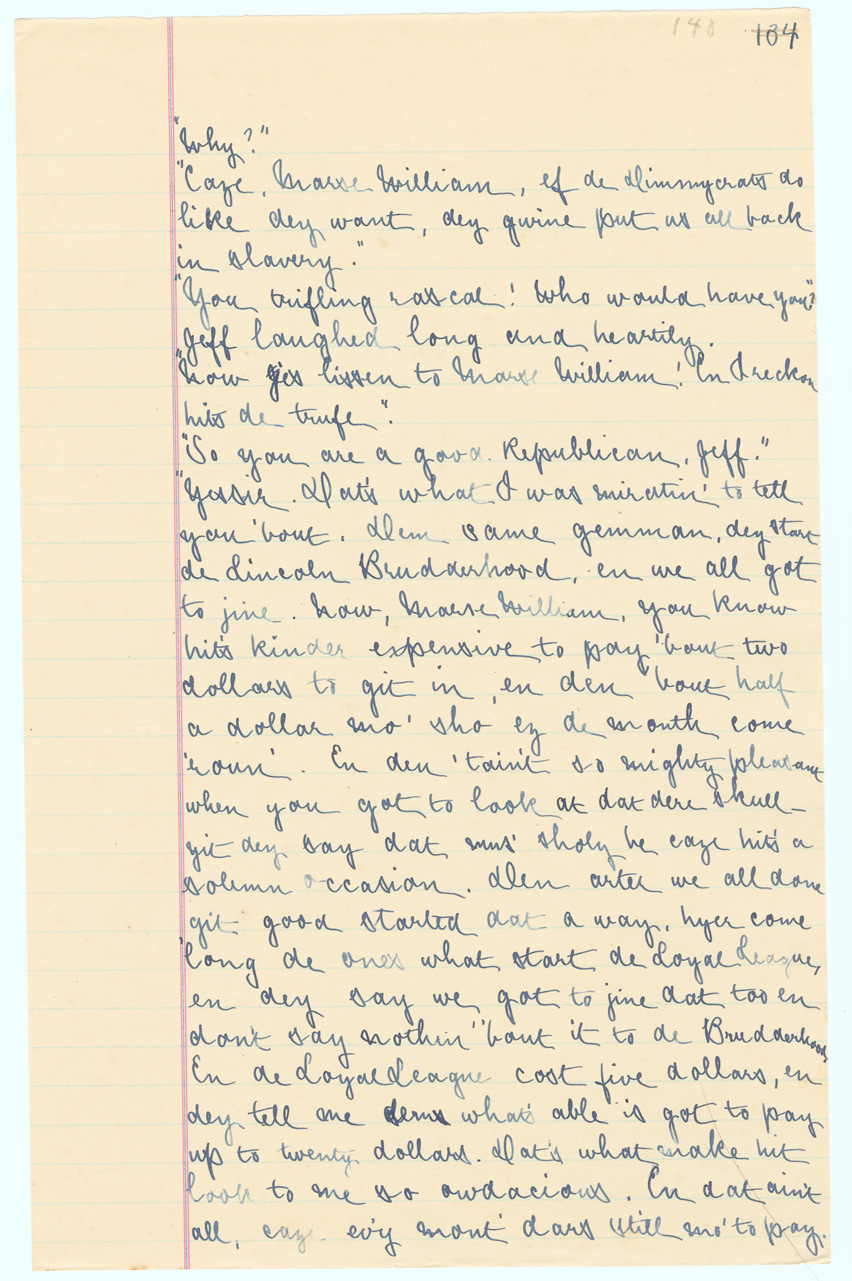 140 134
"Why?"
"Caze, Marse William, ef de Dimmycrats do
like dey want, dey gwine put us all back
in slavery."
"You trifling rascal! Who would have you"?
Jeff laughed long and heartily.
"Now jes lissen to Marse William! En I reckon
hits de trufe".
"So you are a good Republican, Jeff."
"Yessir. Dat's what I was miratin' to tell
you 'bout. Dem same gemman, dey start
de Lincoln Brudderhood, en we all got
to jine. Now, Marse William, you know
hit's kinder expensive to pay 'bout two
dollars to git in, en den 'bout half
a dollar mo' sho ez de month come
'roun'. En den 'tain't so mighty pleasant
when you got to look at dat dere skull–
yit dey say dat mus' sholy be caze hit's a
solemn occasion. Den arter we all done
git good started dat a way, hyer come
'long de ones what start de Loyal League,
en dey say we got to jine dat too en
don't say nothin' 'bout it to de Brudderhood.
En de Loyal League cost five dollars, en
dey tell me dems what's able is got to pay
up to twenty dollars. Dat's what make hit
look to me so owdacious. En dat ain't
all, caze ev'y mont' dars still mo' to pay.